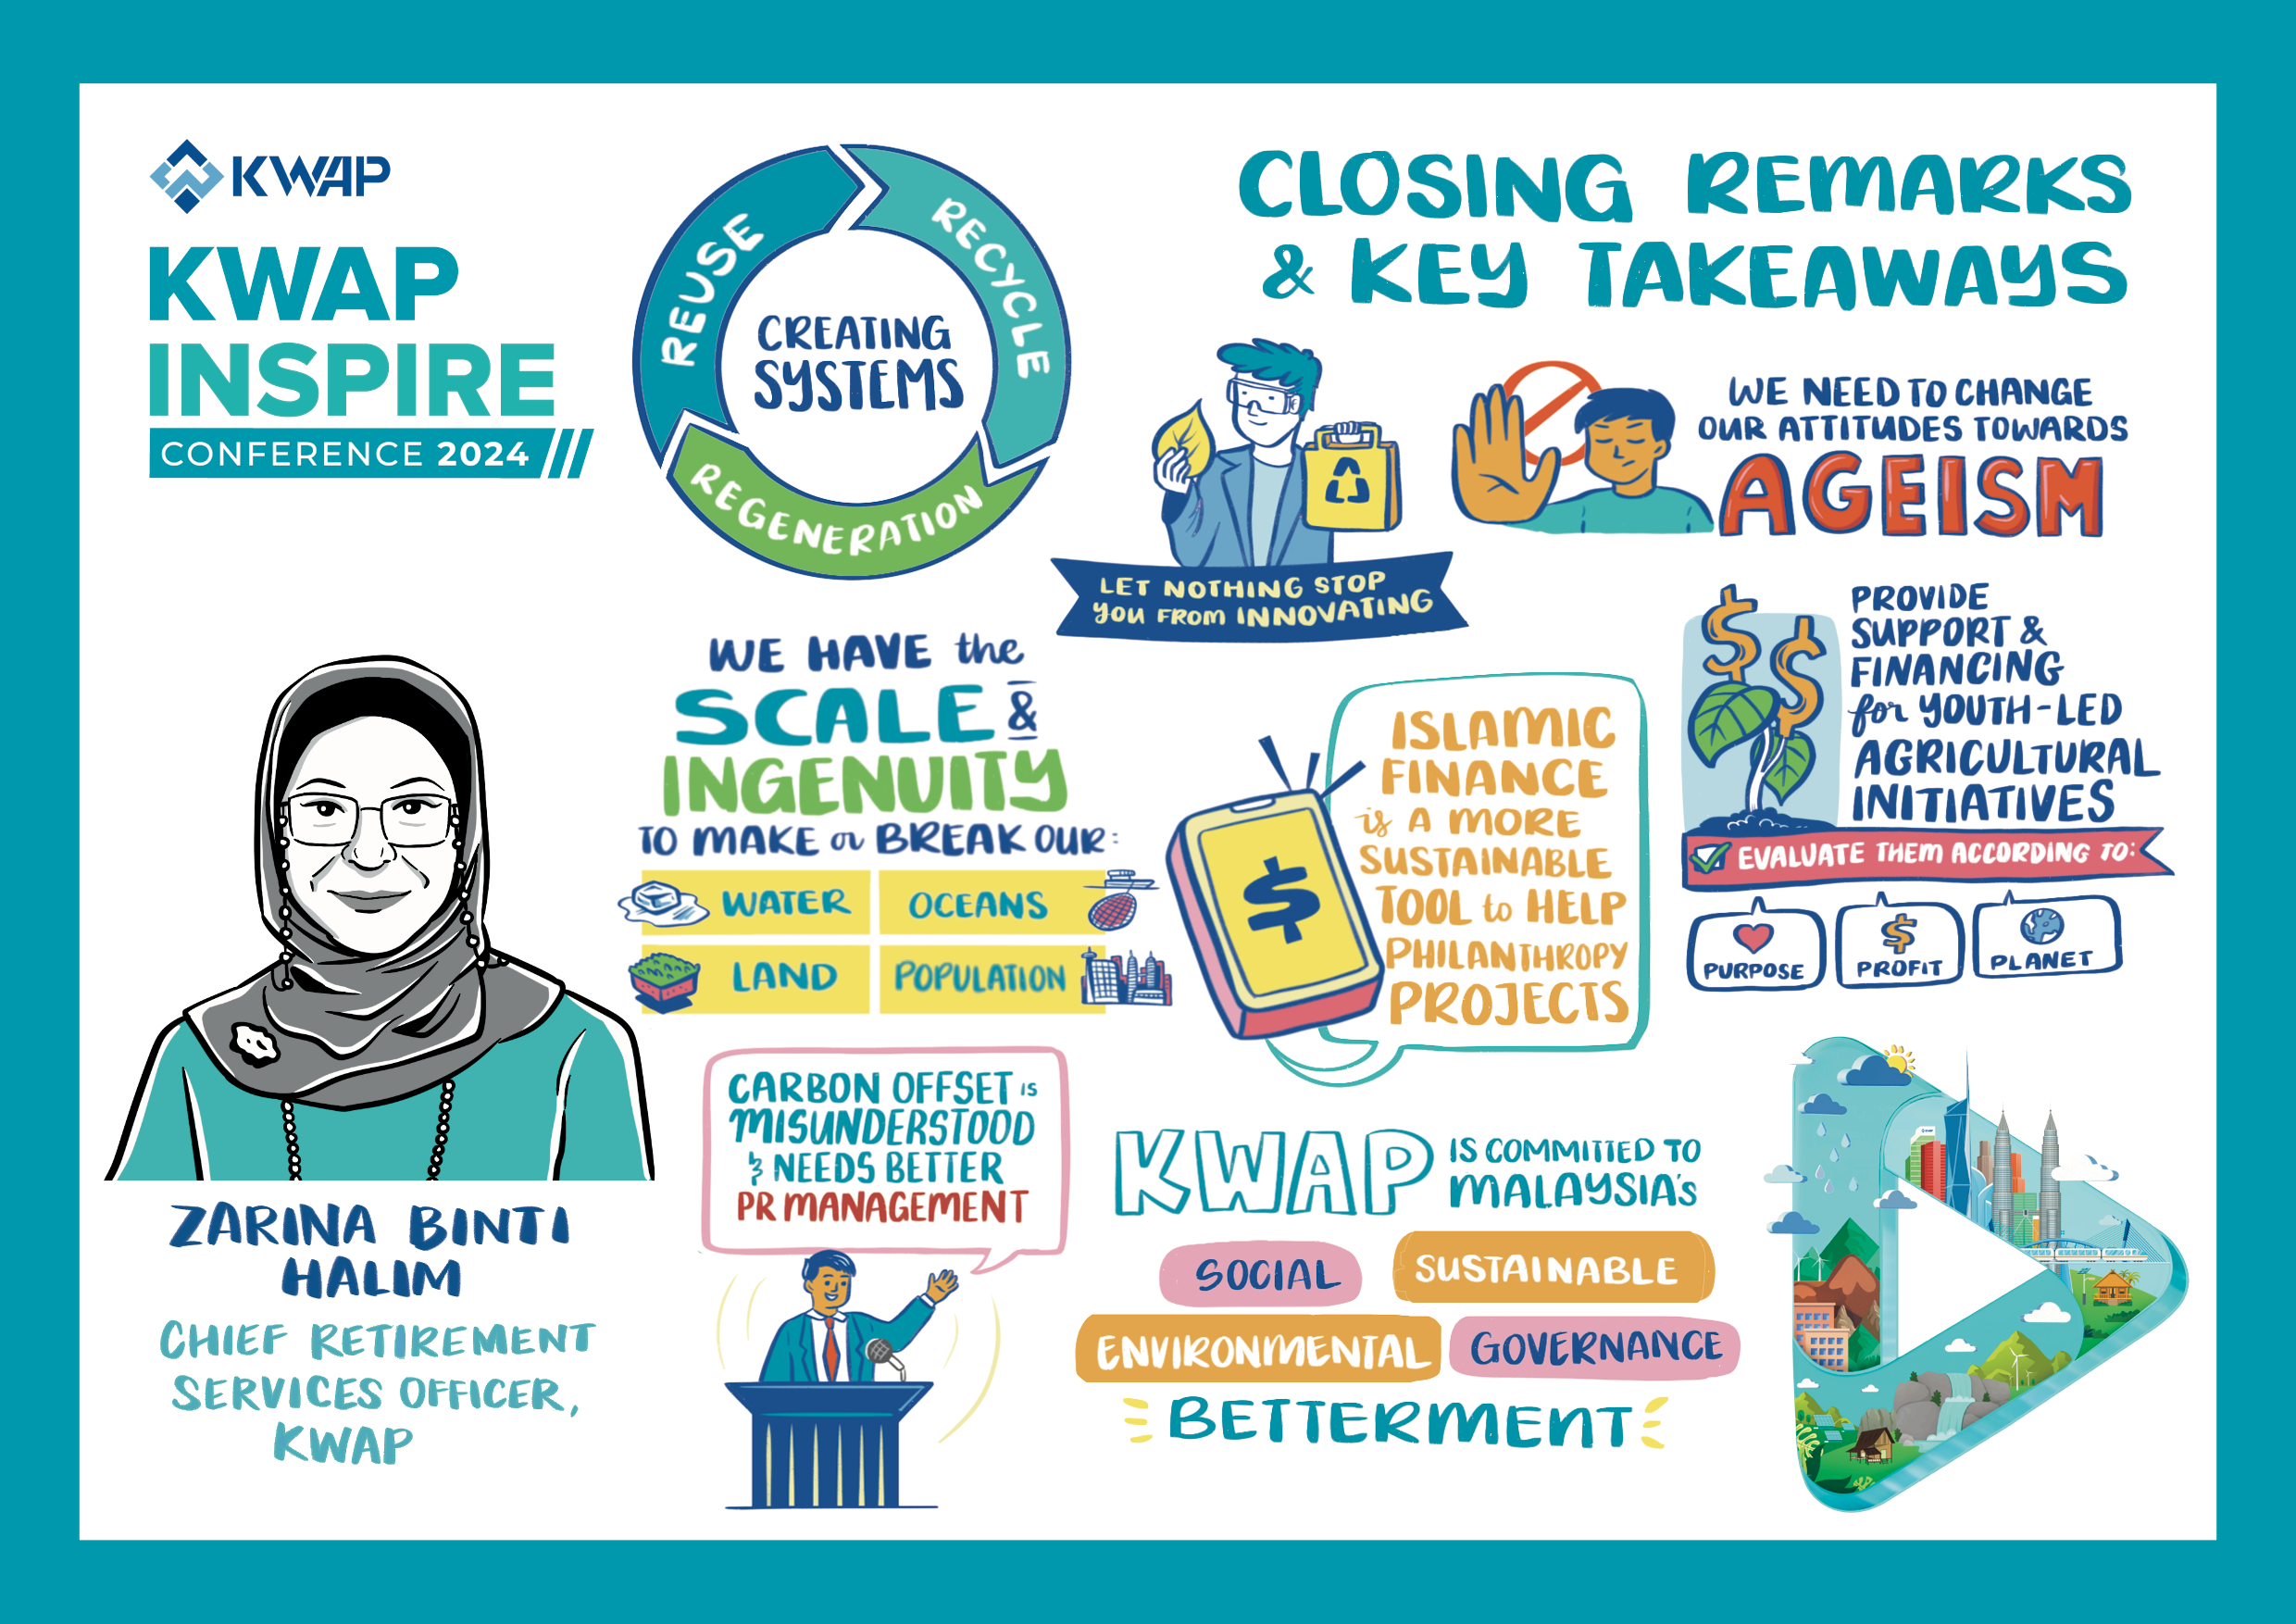 KWAP
KWAP
INSPIRE
CONFERENCE 2024
REUSE
RECYCLE
REGENERATION
CREATING
SYSTEMS
CLOSING REMARKS
& KEY TAKEAWAYS
LET NOTHING STOP
YOU FROM INNOVATING
WE NEED TO CHANGE
OUR ATTITUDES TOWARDS
AGEISM
WE HAVE the
SCALE &
INGENUITY
TO MAKE or BREAK OUR:
WATER
OCEANS
LAND
POPULATION
$
ISLAMIC
FINANCE
is A MORE
SUSTAINABLE
TOOL to HELP
PHILANTHROPY
PROJECTS
$ $
PROVIDE
SUPPORT &
FINANCING
for YOUTH-LED
AGRICULTURAL
INITIATIVES
EVALUATE THEM ACCORDING TO:
PURPOSE
$
PROFIT
PLANET
ZARINA BINTI
HALIM
CHIEF RETIREMENT
SERVICES OFFICER,
KWAP
CARBON OFFSET IS
MISUNDERSTOOD
& NEEDS BETTER
PR MANAGEMENT
KWAP IS COMMITTED TO
MALAYSIA'S
SOCIAL
SUSTAINABLE
ENVIRONMENTAL
GOVERNANCE
BETTERMENT